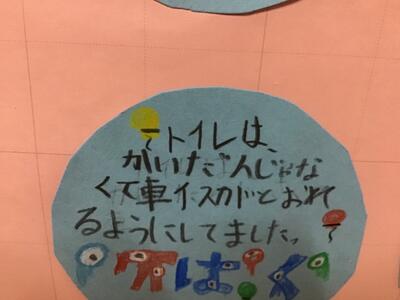 トイレは、
がいだ人じゃな
くて車イスカドとおれ
るようにしてました。